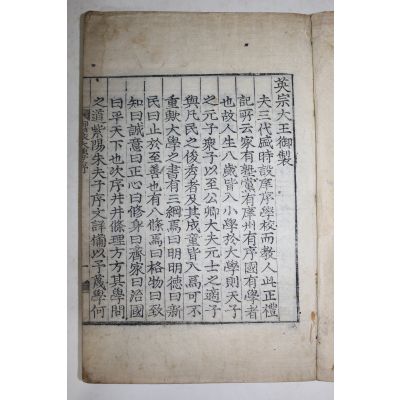 英宗大王御製
夫三代盛時設庠序學校而敎人此正禮
記所云家有塾黨有庠州有序國有學者
也故人生八歲皆入小學於大學則天子
之元子衆子以至公卿大夫元士之適子
與凡民之俊秀者及其成童皆入焉可不
重歟大學之書有三綱焉曰明明德曰新
民曰止於至善也有八條焉曰格物曰致
知曰誠意曰正心曰修身曰齊家曰治國
曰平天下也次序井井條理方方其學問
之道紫陽朱夫子序文詳備以予蔑學何